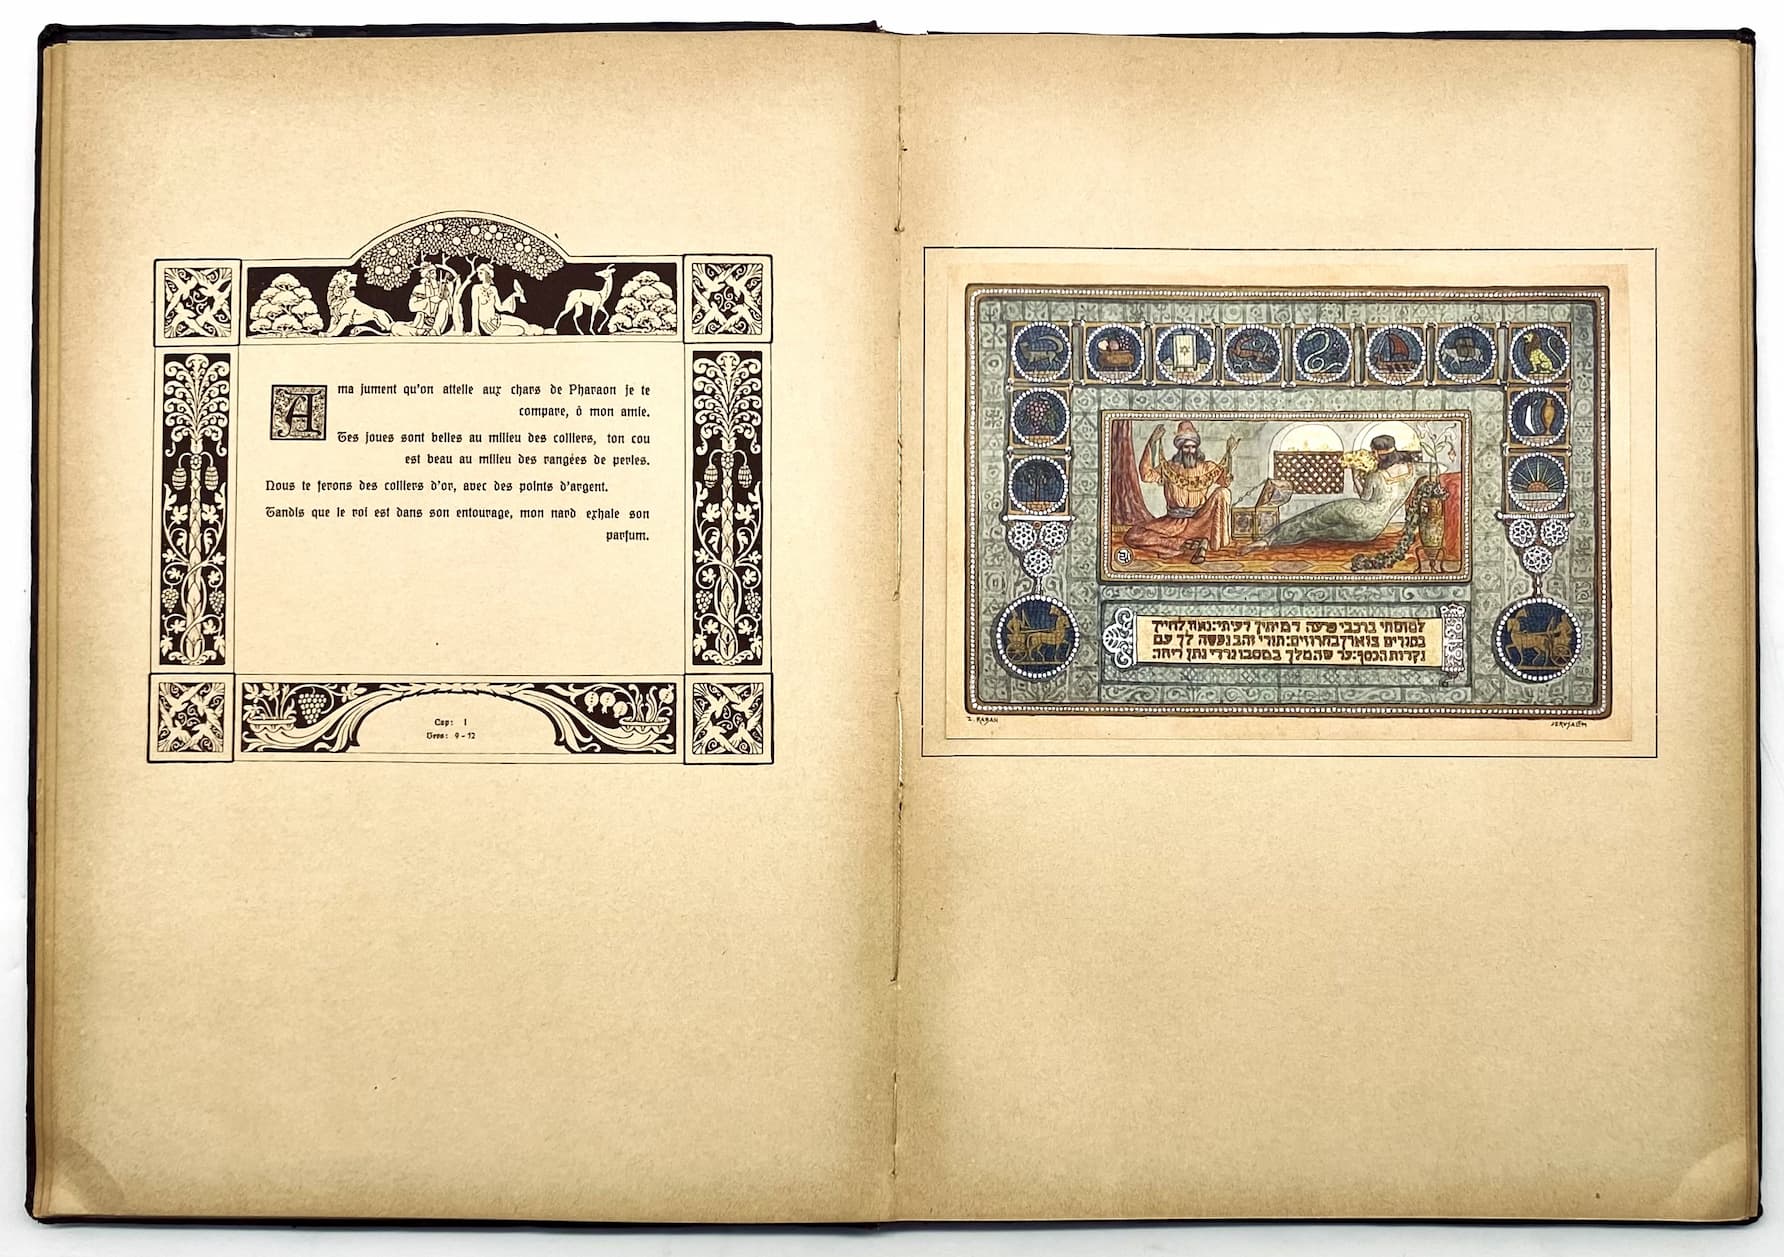 A ma jument qu'on attelle aux chars de Pharaon je te
compare, ô mon amie.
Tes joues sont belles au milieu des colliers, ton cou
est beau au milieu des rangées de perles.
Nous te ferons des colliers d'or, avec des points d'argent.
Tandis que le roi est dans son entourage, mon nard exhale son
parfum.
Cap: I
Vers: 9 - 12
לסוסתי ברכבי פרעה דמיתיך רעיתי: נאוו לחייך
בתורים צוארך בחרוזים: תורי זהב נעשה לך עם
נקדות הכסף: עד שהמלך במסבו נרדי נתן ריחו:
Z. RABAN
JERUSALEM